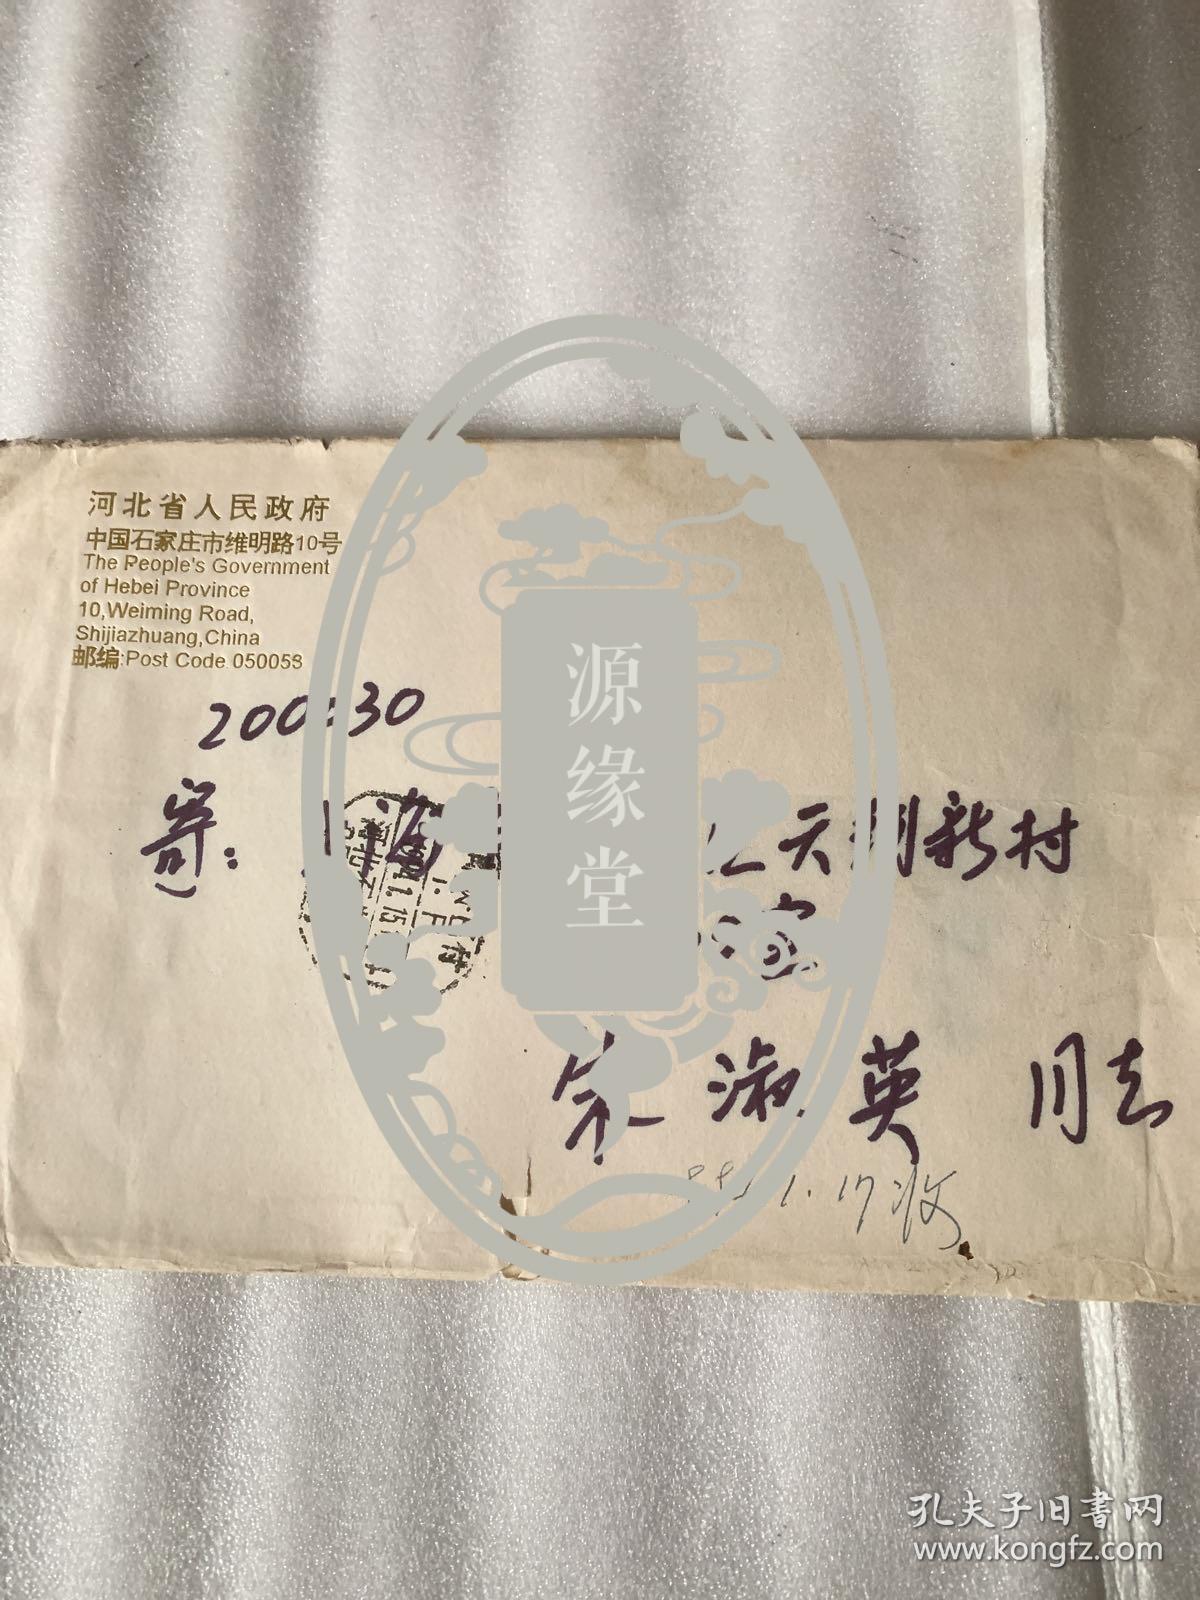 河北省人民政府
中国石家庄市维明路10号
The People's Government
of Hebei Province
10,Weiming Road,
Shijiazhuang,China
邮编:Post Code 050053
寄:上海
天钥新村
室
宋淑英 同志
1.17收
源缘堂
孔夫子旧書网
www.kongfz.com